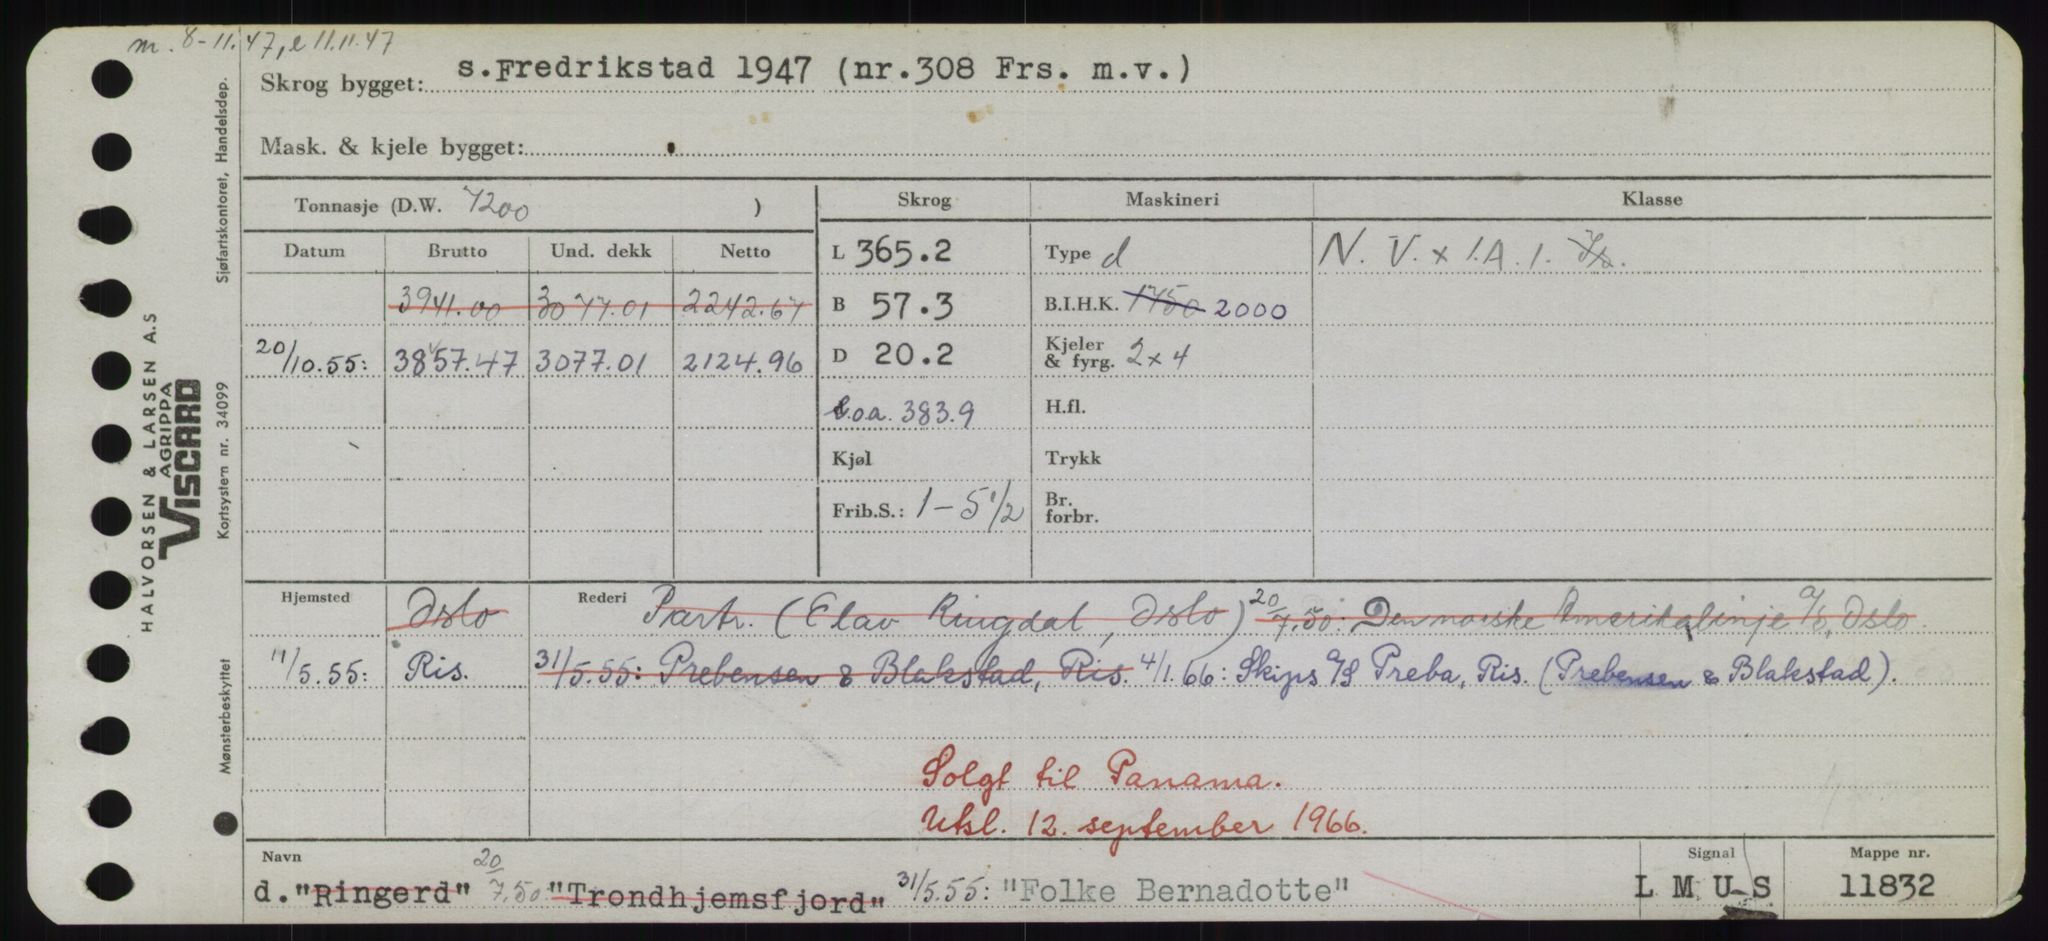 m. 8-11.47, e 11.11.47
Skrog bygget: s.Fredrikstad 1947 (nr.308 Frs. m.v.)
Mask. & kjele bygget:
Tonnasje (D.W. 7200 )
Skrog Maskineri Klasse
Datum Brutto Und. dekk Netto
L 365.2 Type d N. V. x 1.A.1.
3941.00 3077.01 2242.67
B 57.3 B.I.H.K. 1750 2000
20/10.55: 3857.47 3077.01 2124.96
D 20.2 Kjeler & fyrg. 2x4
L.o.a. 383.9 H.fl.
Kjøl Trykk
Frib.S.: 1-5 1/2 Br. forbr.
Hjemsted Oslo Rederi Partr. (Olav Ringdal, Oslo) 20/7.50: Den norske Amerikalinje A/S, Oslo.
11/5.55: Ris. 31/5.55: Prebensen & Blakstad, Ris. 4/1.66: Skips A/S Preba, Ris. (Prebensen & Blakstad).
Solgt til Panama.
Utsl. 12. september 1966.
Navn Signal Mappe nr.
d. "Ringerd" 20/7.50 "Trondhjemsfjord" 31/5.55: "Folke Bernadotte" L M U S 11832
Sjøfartskontoret, Handelsdep.
Kortsystem nr. 34099
Mønsterbeskyttet
HALVORSEN & LARSEN A.S
AGRIPPA
VISCARD